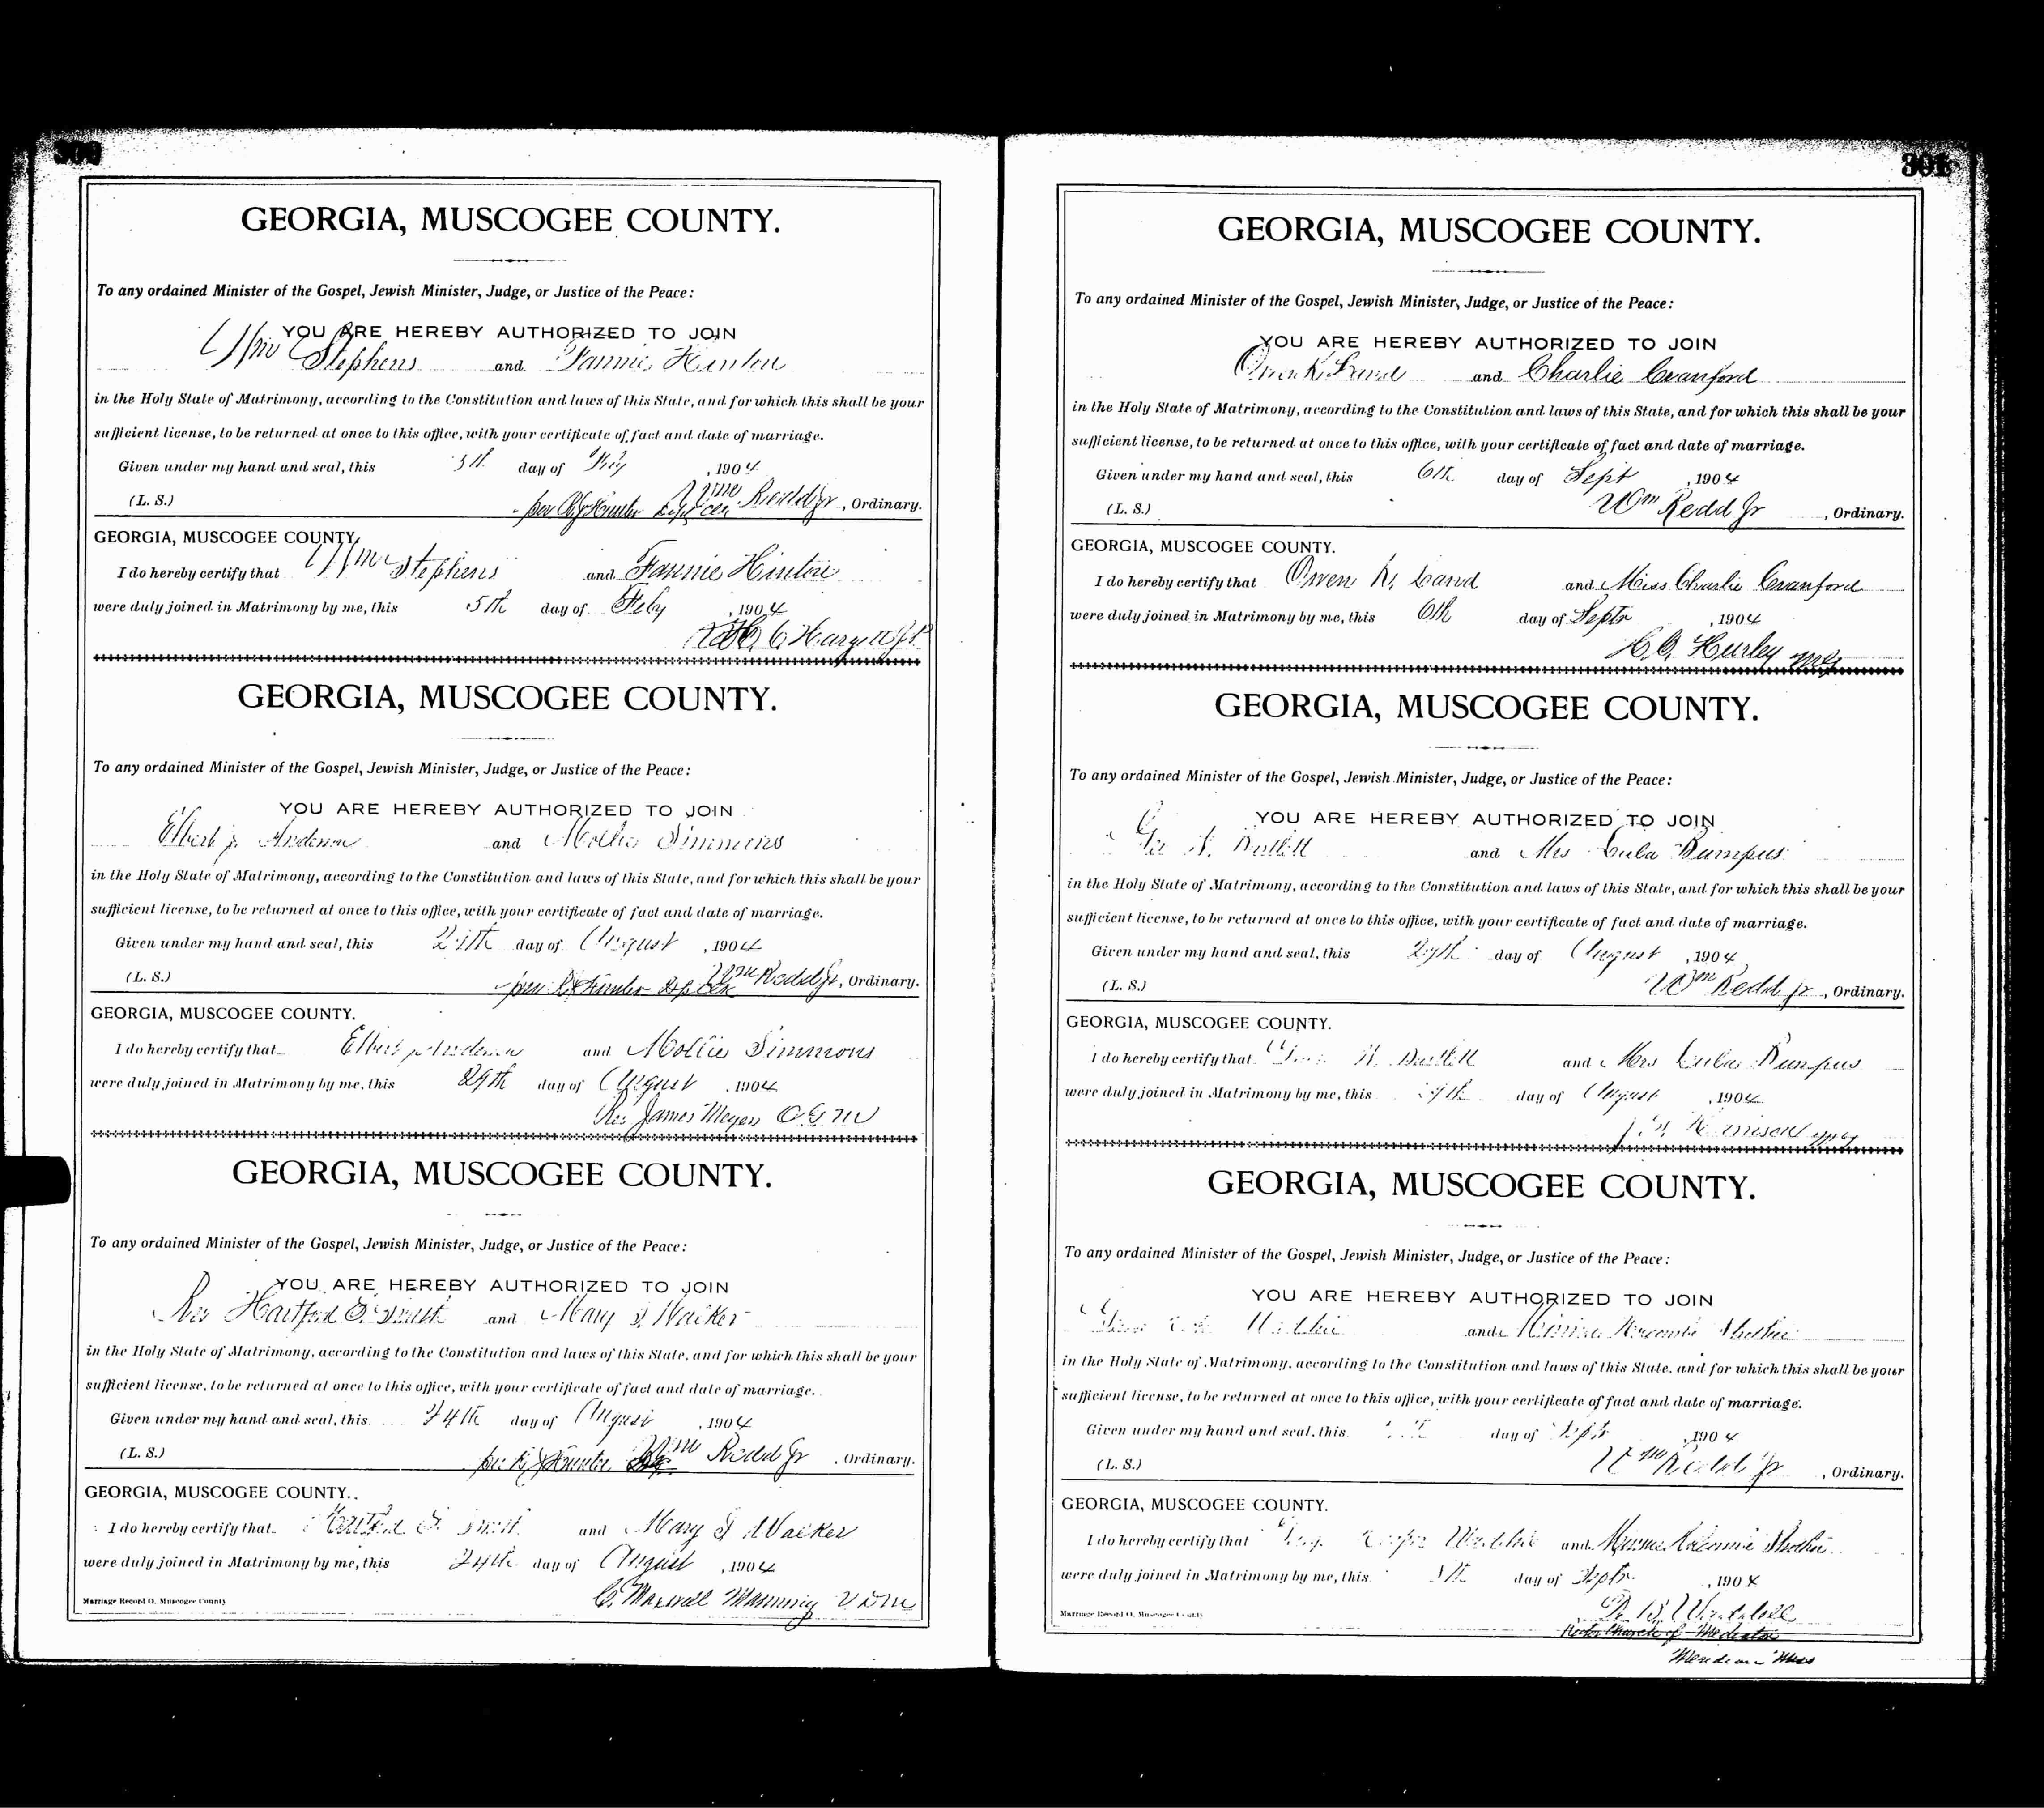 300
GEORGIA, MUSCOGEE COUNTY.
To any ordained Minister of the Gospel, Jewish Minister, Judge, or Justice of the Peace:
YOU ARE HEREBY AUTHORIZED TO JOIN
Wm Stephens and Fannie Hinton
in the Holy State of Matrimony, according to the Constitution and laws of this State, and for which this shall be your
sufficient license, to be returned at once to this office, with your certificate of fact and date of marriage.
Given under my hand and seal, this 5th day of Feby , 1904
(L. S.) per Hunter Wm Redd Jr , Ordinary.
GEORGIA, MUSCOGEE COUNTY.
I do hereby certify that Wm Stephens and Fannie Hinton
were duly joined in Matrimony by me, this 5th day of Feby , 1904
C Hargett
GEORGIA, MUSCOGEE COUNTY.
To any ordained Minister of the Gospel, Jewish Minister, Judge, or Justice of the Peace:
YOU ARE HEREBY AUTHORIZED TO JOIN
Elbert J. Anderson and Mollie Simmons
in the Holy State of Matrimony, according to the Constitution and laws of this State, and for which this shall be your
sufficient license, to be returned at once to this office, with your certificate of fact and date of marriage.
Given under my hand and seal, this day of August , 1904
(L. S.) per Hunter Wm Redd Jr , Ordinary.
GEORGIA, MUSCOGEE COUNTY.
I do hereby certify that Elbert J Anderson and Mollie Simmons
were duly joined in Matrimony by me, this 29th day of August , 1904
Rev James Meyers
GEORGIA, MUSCOGEE COUNTY.
To any ordained Minister of the Gospel, Jewish Minister, Judge, or Justice of the Peace:
YOU ARE HEREBY AUTHORIZED TO JOIN
Rev Hartford E. Smith and Mary J. Walker
in the Holy State of Matrimony, according to the Constitution and laws of this State, and for which this shall be your
sufficient license, to be returned at once to this office, with your certificate of fact and date of marriage.
Given under my hand and seal, this 24th day of August , 1904
(L. S.) per Hunter Wm Redd Jr , Ordinary.
GEORGIA, MUSCOGEE COUNTY.
I do hereby certify that Hartford E. Smith and Mary J Walker
were duly joined in Matrimony by me, this 24th day of August , 1904
C. Maxwell Manning V D M
Marriage Record O. Muscogee County
301
GEORGIA, MUSCOGEE COUNTY.
To any ordained Minister of the Gospel, Jewish Minister, Judge, or Justice of the Peace:
YOU ARE HEREBY AUTHORIZED TO JOIN
Owen K. Land and Charlie Cranford
in the Holy State of Matrimony, according to the Constitution and laws of this State, and for which this shall be your
sufficient license, to be returned at once to this office, with your certificate of fact and date of marriage.
Given under my hand and seal, this 6th day of Sept , 1904
(L. S.) Wm Redd Jr , Ordinary.
GEORGIA, MUSCOGEE COUNTY.
I do hereby certify that Owen K. Land and Miss Charlie Cranford
were duly joined in Matrimony by me, this 6th day of Septr , 1904
Hurley MG
GEORGIA, MUSCOGEE COUNTY.
To any ordained Minister of the Gospel, Jewish Minister, Judge, or Justice of the Peace:
YOU ARE HEREBY AUTHORIZED TO JOIN
Geo and Mrs Lula Bumpus
in the Holy State of Matrimony, according to the Constitution and laws of this State, and for which this shall be your
sufficient license, to be returned at once to this office, with your certificate of fact and date of marriage.
Given under my hand and seal, this 29th day of August , 1904
(L. S.) Wm Redd Jr , Ordinary.
GEORGIA, MUSCOGEE COUNTY.
I do hereby certify that and Mrs Lula Bumpus
were duly joined in Matrimony by me, this 29th day of August , 1904
MG
GEORGIA, MUSCOGEE COUNTY.
To any ordained Minister of the Gospel, Jewish Minister, Judge, or Justice of the Peace:
YOU ARE HEREBY AUTHORIZED TO JOIN
and Strother
in the Holy State of Matrimony, according to the Constitution and laws of this State, and for which this shall be your
sufficient license, to be returned at once to this office, with your certificate of fact and date of marriage.
Given under my hand and seal, this day of Sept , 1904
(L. S.) Wm Redd Jr , Ordinary.
GEORGIA, MUSCOGEE COUNTY.
I do hereby certify that and Strother
were duly joined in Matrimony by me, this 8th day of Septr. , 1904
Rector Church of Mediator
Meridian Miss
Marriage Record O. Muscogee County